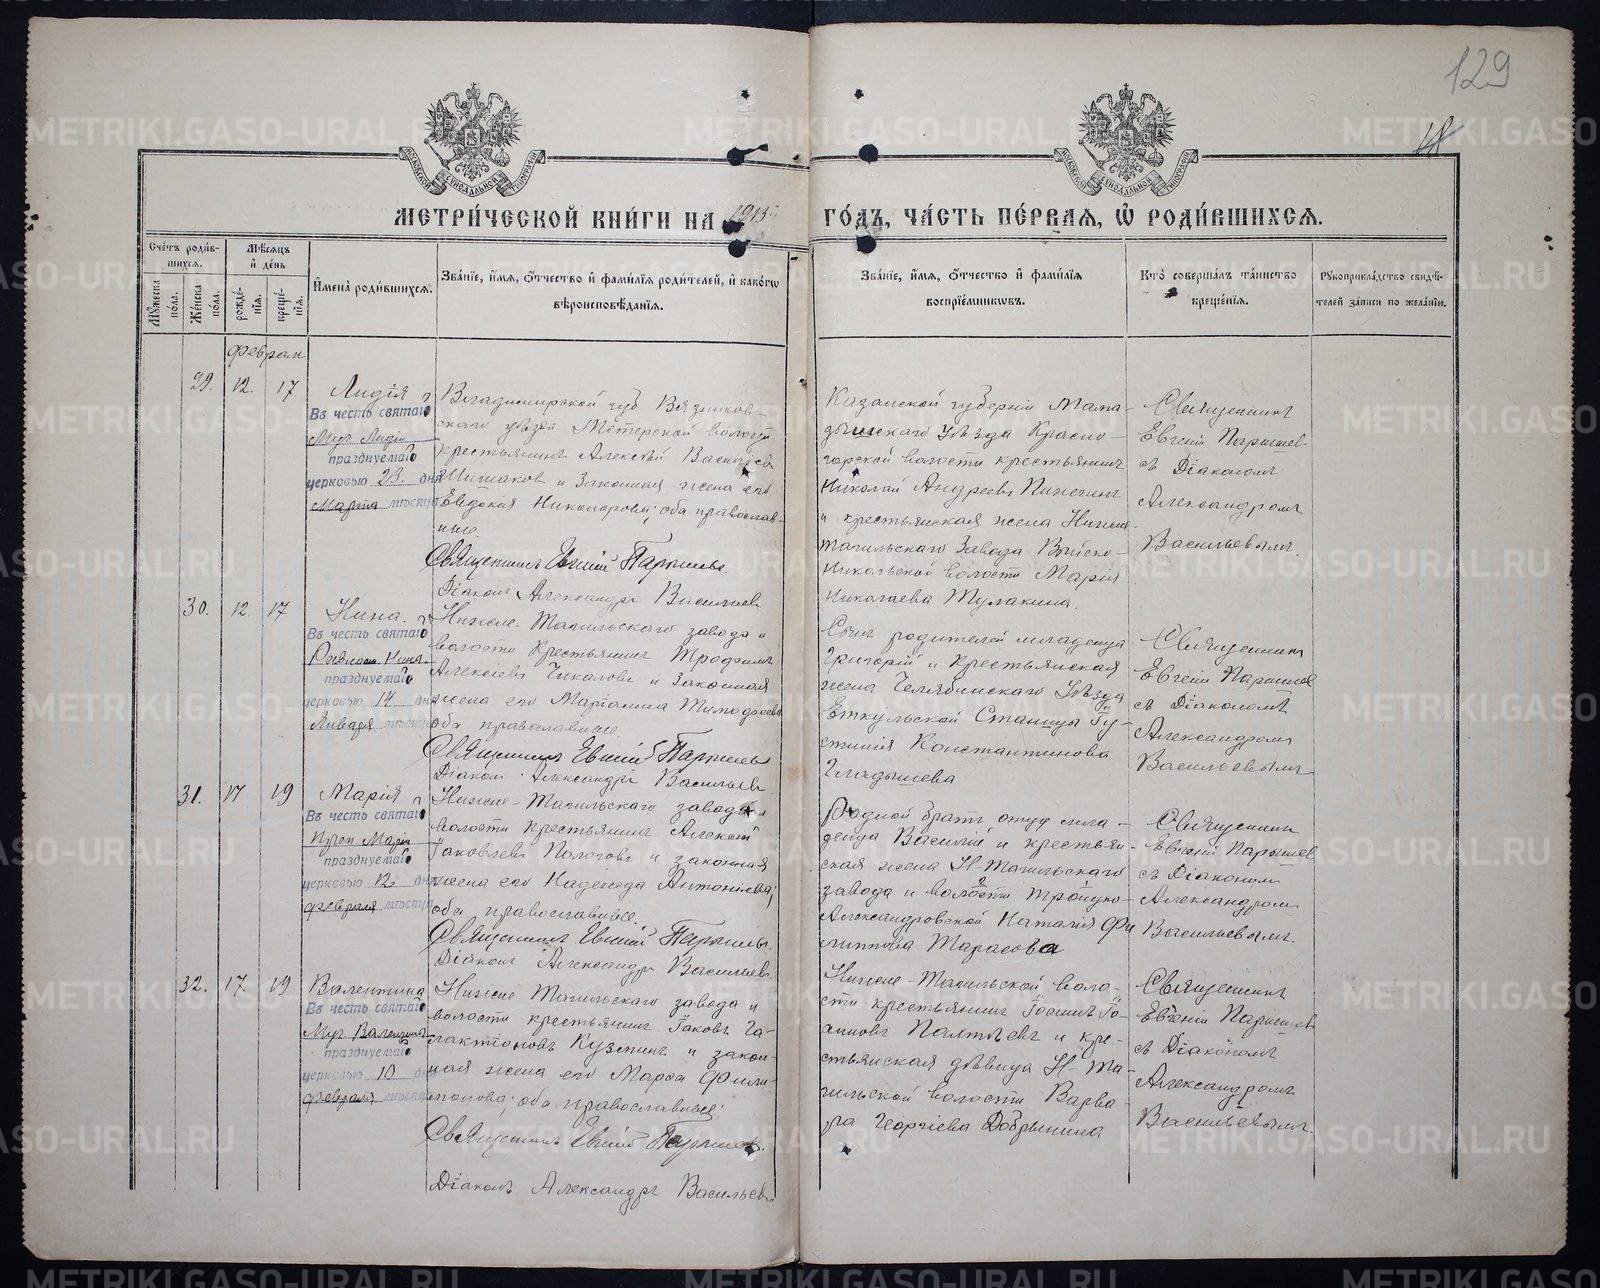 129
МЕТРИ́ЧЕСКОЙ КНИ́ГИ НА 1913 ГО́ДЪ, ЧА́СТЬ ПЕ́РВАЯ, Ѽ РОДИ́ВШИХСЯ.
Сче́тъ роди́вшихся.
Мꙋ́жеска по́ла.
Же́нска по́ла.
Мѣ́сяцъ и де́нь
рожде́нія.
креще́нія.
Имена̀ роди́вшихся.
Зва́ніе, и́мя, ѻ́тчество и фами́лія роди́телей, и како́гѡ вѣроисповѣ́данія.
Зва́ніе, и́мя, ѻ́тчество и фами́лія воспріе́мниковъ.
Кто̀ соверша́лъ та́инство креще́нія.
Рꙋкоприкла́дство свидѣ́телей за́писи по жела́нію.
29. 12. 17
Лидія
Въ честь святаго
Муч. Лидіи
празднуемаго
церковью 23. дня
Марта мѣсяца
Владимірской губ Вязников-
скаго уѣзда Мстерской волости
крестьянинъ Алексѣй Васильевъ
Шишаковъ и Законная жена его
Евдокія Никанорова; оба православ-
ные.
Священникъ Евгеній Парышевъ.
Діаконъ Александръ Васильевъ
Казанской губерніи Мама-
дышскаго Уѣзда Красно-
горской волости крестьянинъ
Николай Андреевъ Пинегинъ
и крестьянская жена Нижне-
тагильскаго Завода Выйско-
Никольской волости Марія
Николаева Тулакина.
Священникъ
Евгеній Парышев
съ Діакономъ
Александромъ
Васильевымъ.
30. 12. 17
Нина.
Въ честь святаго
Равноап. Нины
празднуемаго
церковью 14 дня
Января мѣсяца
Нижне-Тагильскаго завода и
волости Крестьянинъ Трофимъ
Алексѣевъ Чикаловъ и Законная
жена его Маріамна Тимофеева
оба православные.
Священникъ Евгеній Парышевъ
Діаконъ Александръ Васильевъ
Сынъ родителей младенца
Григорій и Крестьянская
жена Челябинскаго Уѣзда
Еткульской Станицы Іу-
стинія Константинова
Гладышева
Священникъ
Евгеній Парышев
съ Діакономъ
Александромъ
Васильевымъ
31. 17 19
Марія
Въ честь святаго
Преп Маріи
празднуемаго
церковью 12 дня
февраля мѣсяца
Нижне-Тагильскаго завода и
волости крестьянинъ Алексѣй
Іаковлевъ Пологовъ и законная
жена его Надежда Антоніева;
оба православные.
Священникъ Евгеній Парышевъ.
Діаконъ Александръ Васильевъ
Родной братъ отца мла-
денца Василій и крестьян-
ская жена Н Тагильскаго
завода и волости Троицко-
Александровской Наталія Фи
липпова Тарасова
Священникъ
Евгеній Парышев
съ Діакономъ
Александромъ
Васильевымъ.
32. 17. 19
Валентина
Въ честь святаго
Муч. Валентины
празднуемаго
церковью 10 дня
февраля мѣсяца
Нижне Тагильскаго завода и
волости крестьянинъ Іаковъ Га-
лактіоновъ Кузнинъ и закон-
ная жена его Марѳа Фили-
монова; оба православные.
Священникъ Евгеній Парышевъ.
Діаконъ Александръ Васильевъ
Нижне-Тагильской воло-
сти крестьянинъ Іоаннъ Іо-
анновъ Пантѣевъ и кре-
стьянская дѣвица Н-Та-
гильской волости Варва-
ра Георгіева Добрынина
Священникъ
Евгеній Парышев
съ Діакономъ
Александромъ
Васильевымъ
Февраля
МОСКОВСКОЙ СѴНОДАЛЬНОЙ ТИПОГРАФІИ
МОСКОВСКОЙ СѴНОДАЛЬНОЙ ТИПОГРАФІИ
METRIKI.GASO-URAL.RU